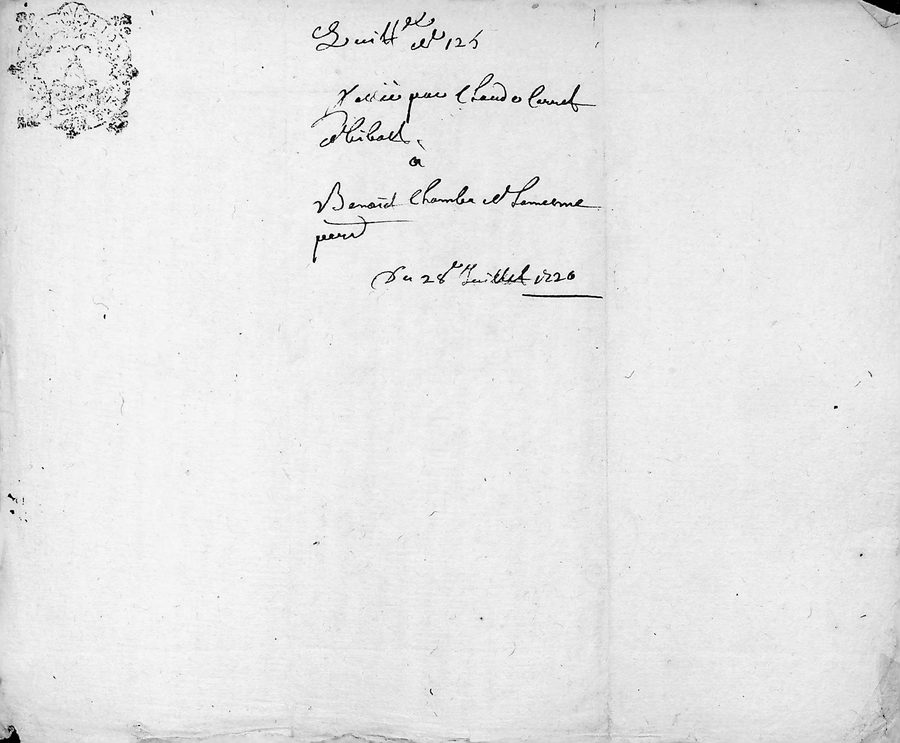 Quitt.ce de 125
passée par Claude Carret
Thibault
à
Benoist Chambe de Lamerme
pierre
Du 28e Juillet 1720